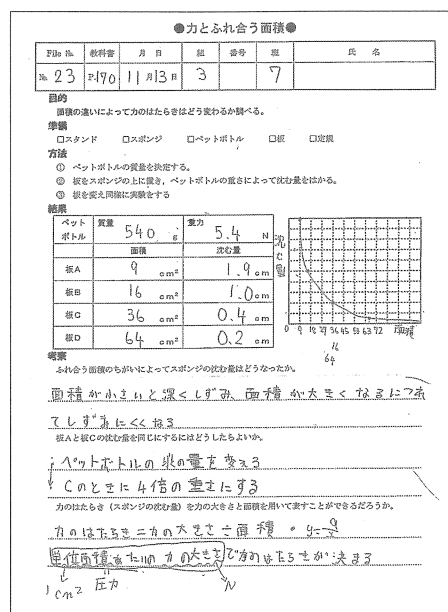 ●力とふれ合う面積●
File № 教科書 月 日 組 番号 班 氏 名
№ 23 P.170 11月13日 3 7
目的
面積の違いによって力のはたらきはどう変わるか調べる。
準備
□スタンド □スポンジ □ペットボトル □板 □定規
方法
① ペットボトルの質量を決定する。
② 板をスポンジの上に置き、ペットボトルの重さによって沈む量をはかる。
③ 板を変え同様に実験をする
結果
ペットボトル 質量 540 g 重力 5.4 N
面積 沈む量
板A 9 cm² 1.9cm
板B 16 cm² 1.0cm
板C 36 cm² 0.4cm
板D 64 cm² 0.2cm
沈む量
0 9 18 27 36 45 54 63 72 面積
16
64
考察
ふれ合う面積のちがいによってスポンジの沈む量はどうなったか。
面積が小さいと深くしずみ、面積が大きくなるにつれ
てしずみにくくなる
板Aと板Cの沈む量を同じにするにはどうしたらよいか。
ペットボトルの水の量を変える
Cのときに4倍の重さにする
力のはたらき（スポンジの沈む量）を力の大きさと面積を用いて表すことができるだろうか。
力のはたらき＝力の大きさ÷面積 y=a/x
単位面積あたりの力の大きさで力のはたらきが決まる
1cm² 圧力 N